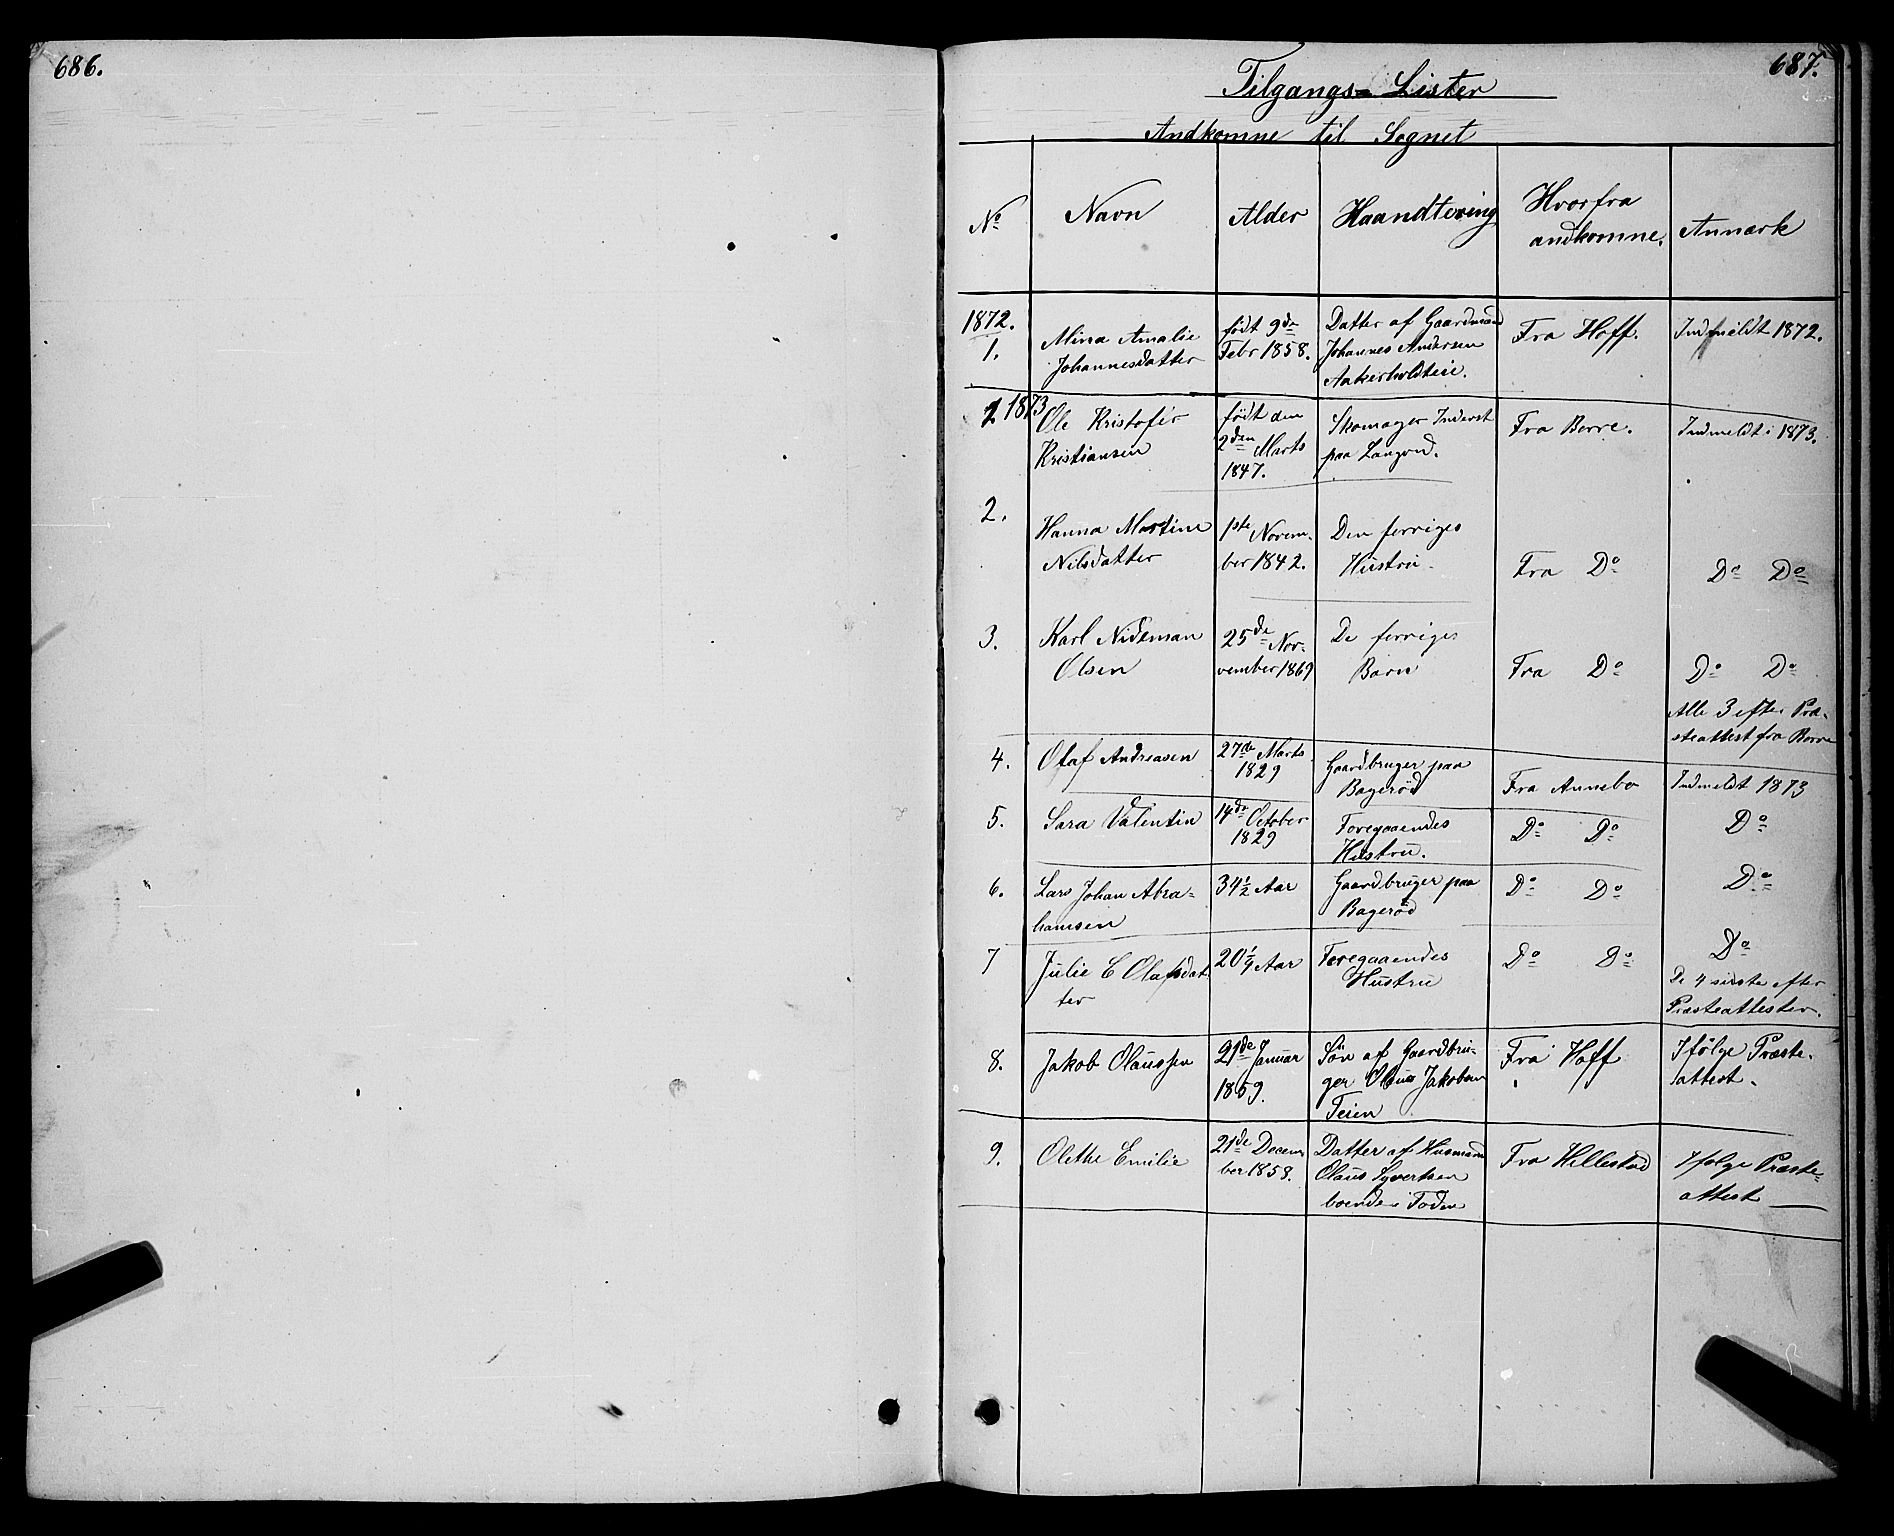 686.
687.
Tilgangs-Lister
Andkomne til Sognet
No Navn Alder Haandtering Hvorfra andkomne. Anmærk
1872.
1. Mina Amalie Johannesdatter
født 9de Febr 1858.
Datter af Gaardmand Johannes Andersen Aakerholdteie.
Fra Hoff.
Indmeldt 1872.
1 1873 Ole Kristofer Kristiansen
født den 2den Marts 1847.
Skomager Inderst paa
Fra Borre.
Indmeldt i 1873.
2. Hanna Martine Nilsdatter
1ste Novem-
ber 1842.
Den forriges Hustru.
Fra Do
Do Do
3. Karl Nideman Olsen
25de No-
vember 1869
De forriges Barn
Fra Do
Do Do
Alle 3 efter Præ-
steattest fra Borre
4. Olaf Andreasen
27de Marts 1829
Gaardbruger paa Bagerød
Fra Annebo
Indmeldt 1873
5. Sara Valentin
14de October 1829
Foregaaendes Hustru.
Do Do
Do
6. Lars Johan Abra-
hamsen
34½ Aar
Gaardbruger paa Bagerød
Do Do
Do
7 Julie C Olafsdat-
ter
20¼ Aar
Foregaaendes Hustru
Do Do
Do
De 4 sidste efter
Præsteattester.
8. Jakob Olaussen
21de Januar 1859.
Søn af Gaardbru-
ger Olaus Jakobsen Teien
Fra Hoff
Ifølge Præste-
attest.
9. Olethe Emilie
21de Decem
ber 1858.
Datter af Husmand
Olaus Syvertsen
boende i Foden
Fra Hillestad
Ifølge Præste-
attest